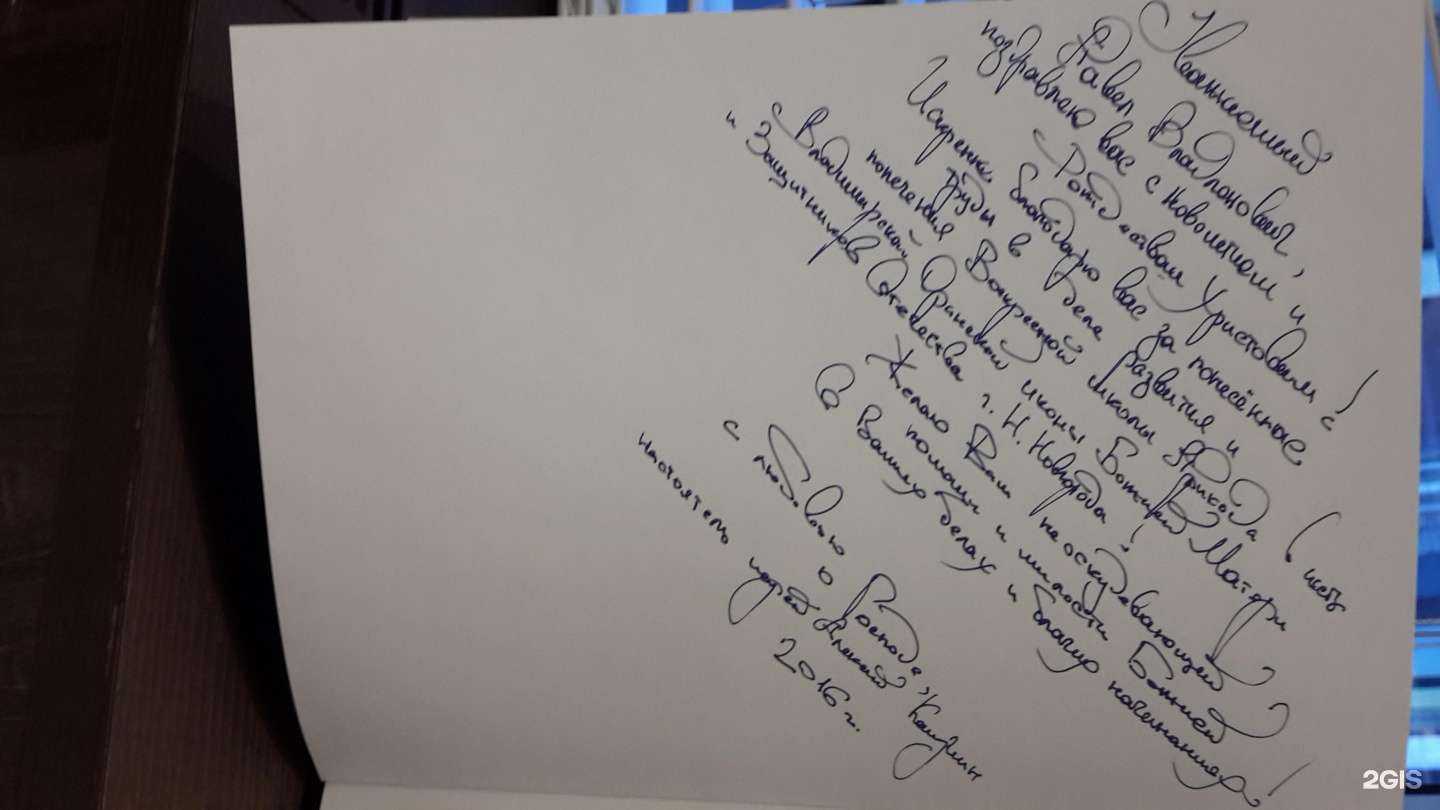 Уважаемый
Павел Владленович,
поздравляю вас с новолетием и
Рождеством Христовым!
Искренне благодарю вас за понесённые
труды в деле развития и
попечения Воскресной школы прихода
с Владимирской Оранской иконы Божией Матери
и Защитников Отечества г. Н. Новгорода!
Желаю Вам неоскудевающей
помощи и милости Божией
в Ваших делах и благих начинаниях!
с любовью о Господе,
настоятель иерей Алексий
2016 г.
2GIS